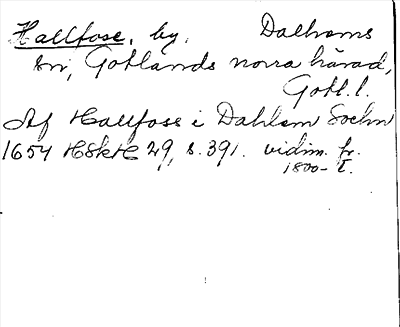 Hallfose, by, Dalhems
sn, Gotlands norra härad,
Gotl. l.
Af Hallfoss i Dahlem Sochn
1654 HSkH 29, s. 391. vidim. fr.
1800-t.